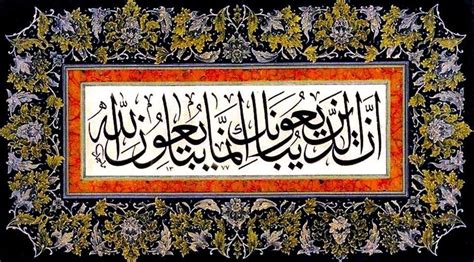 اِنَّ الَّذينَ يُبايِعُونَكَ اِنَّما يُبايِعُونَ اللهَ
١٣٧٧